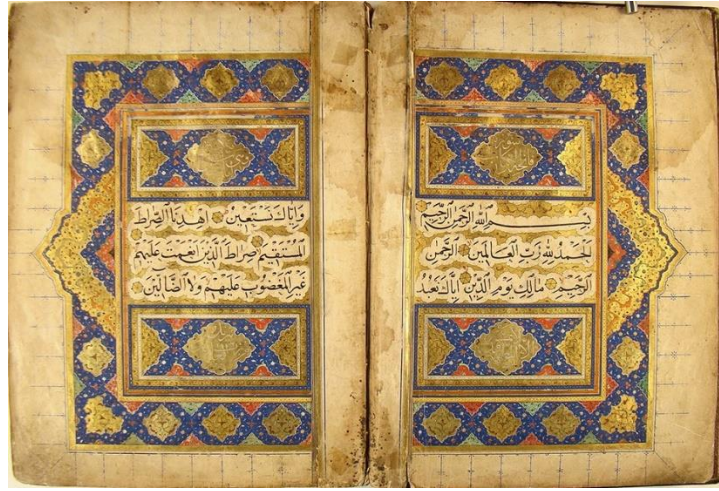 بِسْمِ اللَّهِ الرَّحْمَٰنِ الرَّحِيمِ
الْحَمْدُ لِلَّهِ رَبِّ الْعَالَمِينَ الرَّحْمَٰنِ
الرَّحِيمِ مَالِكِ يَوْمِ الدِّينِ إِيَّاكَ نَعْبُدُ
وَإِيَّاكَ نَسْتَعِينُ اهْدِنَا الصِّرَاطَ
الْمُسْتَقِيمَ صِرَاطَ الَّذِينَ أَنْعَمْتَ عَلَيْهِمْ
غَيْرِ الْمَغْضُوبِ عَلَيْهِمْ وَلَا الضَّالِّينَ